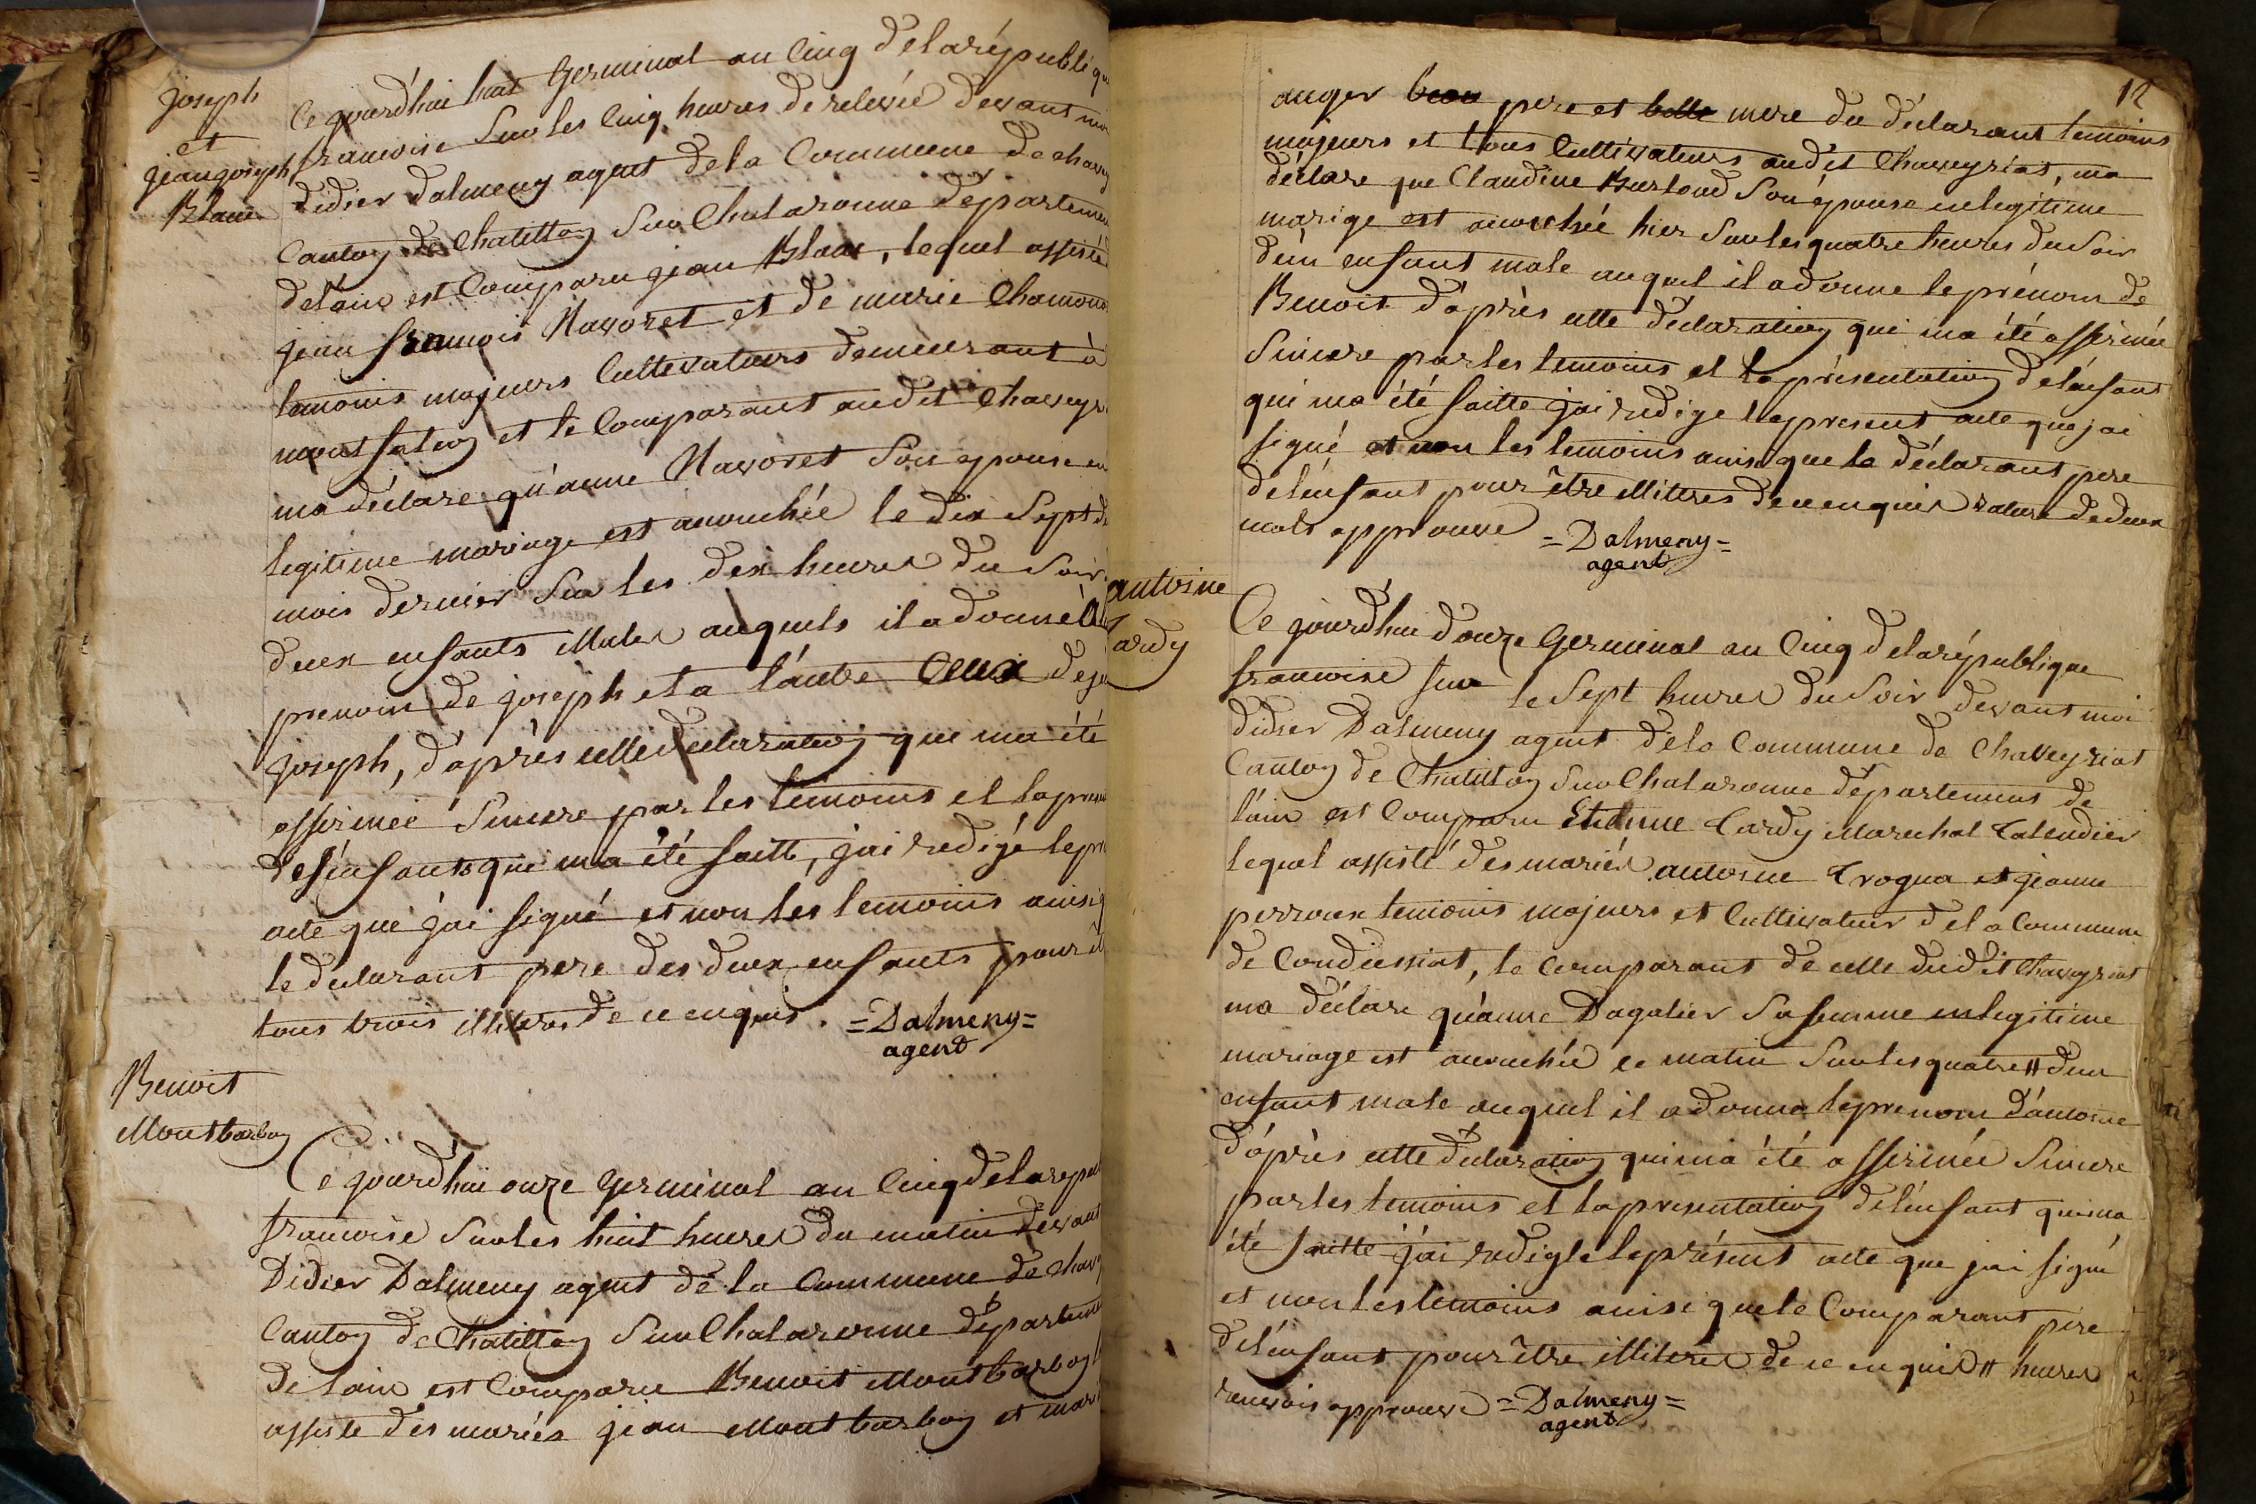 joseph
et
jean joseph
Blanc
Ce jourd'hui huit Germinal an Cinq de la république
francoise Sur les Cinq heures de relevée devant moi
didier dalmeny agent de la Commune de chavey
Canton de Chatillon Sur Chalaronne département
de l'ain est Comparu jean Blanc, lequel assisté
jean francois Navoret et de marie Chamona
temoins majeurs Cultivateurs demeurant à
montfalcon et le Comparant audit Chaveyr
ma déclare qu'anne Navoret Son epouse en
legitime mariage est accouchée le dix Sept du
mois dernier Sur les dix heures du Soir
deux enfants Males auquels il a donné à l
prenom de joseph et a l'autre Ceux de je
joseph, d'après cette declaration qui ma été
affirmée Sincere par les temoins et la presen
des enfants qui ma été faitte, j'ai redigé le pre
acte que j'ai signé et non les temoins ainsi q
le declarant pere des deux enfants pour êt
tous trois illiteres de ce enquis. =Dalmeny=
agent
Benoit
Montbarbon
Ce jourd'hui onze germinal an Cinq de la repu
francoise Sur les huit heures du matin devant
Didier Dalmeny agent de la Commune de chavey
Canton de Chatillon Sur Chalaronne départeme
de l'ain est Comparu Benoit Montbarbon l
assisté des mariés jean Montbarbon et mari
12
auger beau pere et belle mere du déclarant temoins
majeurs et tous Cultivateurs audit Chaveyriat, ma
déclare que Claudine Burtoud Son épouse en legitime
marige est accouchée hier Sur les quatre heures du Soir
d'un enfant male auquel il a donne le prénom de
Benoit d'après cette déclaration qui ma été affirmée
Sincere par les temoins et la présentation de l'enfant
qui ma été faitte j'ai redige le present acte que j'ai
signé et non les temoins ainsi que le déclarant pere
de l'enfant pour être illiteres de ce enquis rature de deux
mots approuve =Dalmeny=
agent
antoine
Tardy
Ce jourd'hui douze Germinal an Cinq de la république
francoise sur le Sept heures du Soir devant moi
didier Dalmeny agent de la Commune de Chaveyriat
Canton de Chatillon Sur Chalaronne département de
l'ain est Comparu Etienne Tardy Marechal Talendier
lequel assisté des mariés antoine Trogna et jeanne
perroux temoins majeurs et Cultivateur de la Commune
de Condeissiat, le Comparant de celle dudit Chaveyriat
ma déclare qu'anne Dagalier Sa femme en legitime
mariage est accouchée ce matin Sur les quatre # d'un
enfant male auquel il a donna le prenom d'antoine
d'après cette déclaration qui ma été affirmée Sincere
par les temoins et la presentation de l'enfant qui ma
été faitte j'ai redigé le présent acte que j'ai signé
et non les temoins ainsi que le Comparant pere
de l'enfant pour être illiteres de ce enquis # heures
renvois approuvé =Dalmeny=
agent